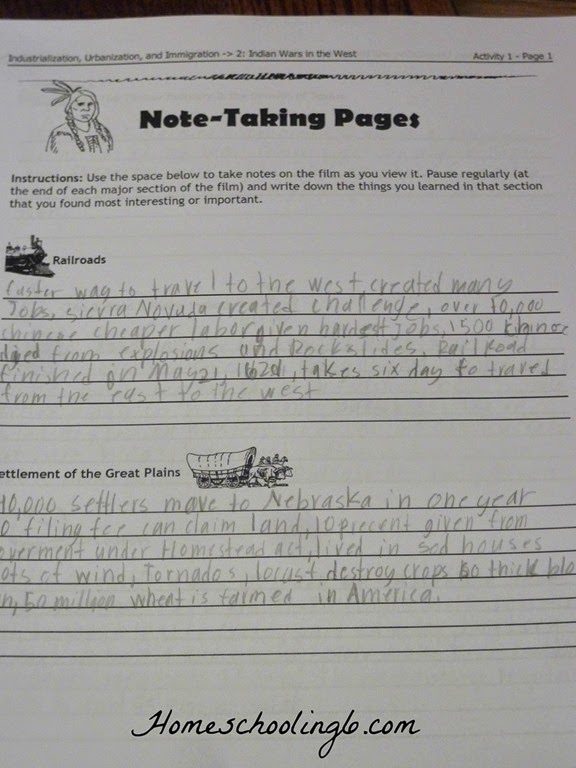 Industrialization, Urbanization, and Immigration -> 2: Indian Wars in the West Activity 1 - Page 1
Note-Taking Pages
Instructions: Use the space below to take notes on the film as you view it. Pause regularly (at
the end of each major section of the film) and write down the things you learned in that section
that you found most interesting or important.
Railroads
faster way to travel to the west, created many
Jobs, sierra Novuda created challenge, over 10,000
chinese cheaper labor given hardest jobs, 1500 Chinoe
died from explosions and Rockslides, RailRoad
finished on May 21, takes six day to travel
from the east to the west
ettlement of the Great Plains
40,000 settlers move to Nebraska in one year
0 filing fee can claim land, 10 precent given from
overment under Homestead act, lived in sod houses
ots of wind, Tornados, locust destroy crops so thick blo
n, 50 million wheat is farmed in America.
Homeschooling6.com